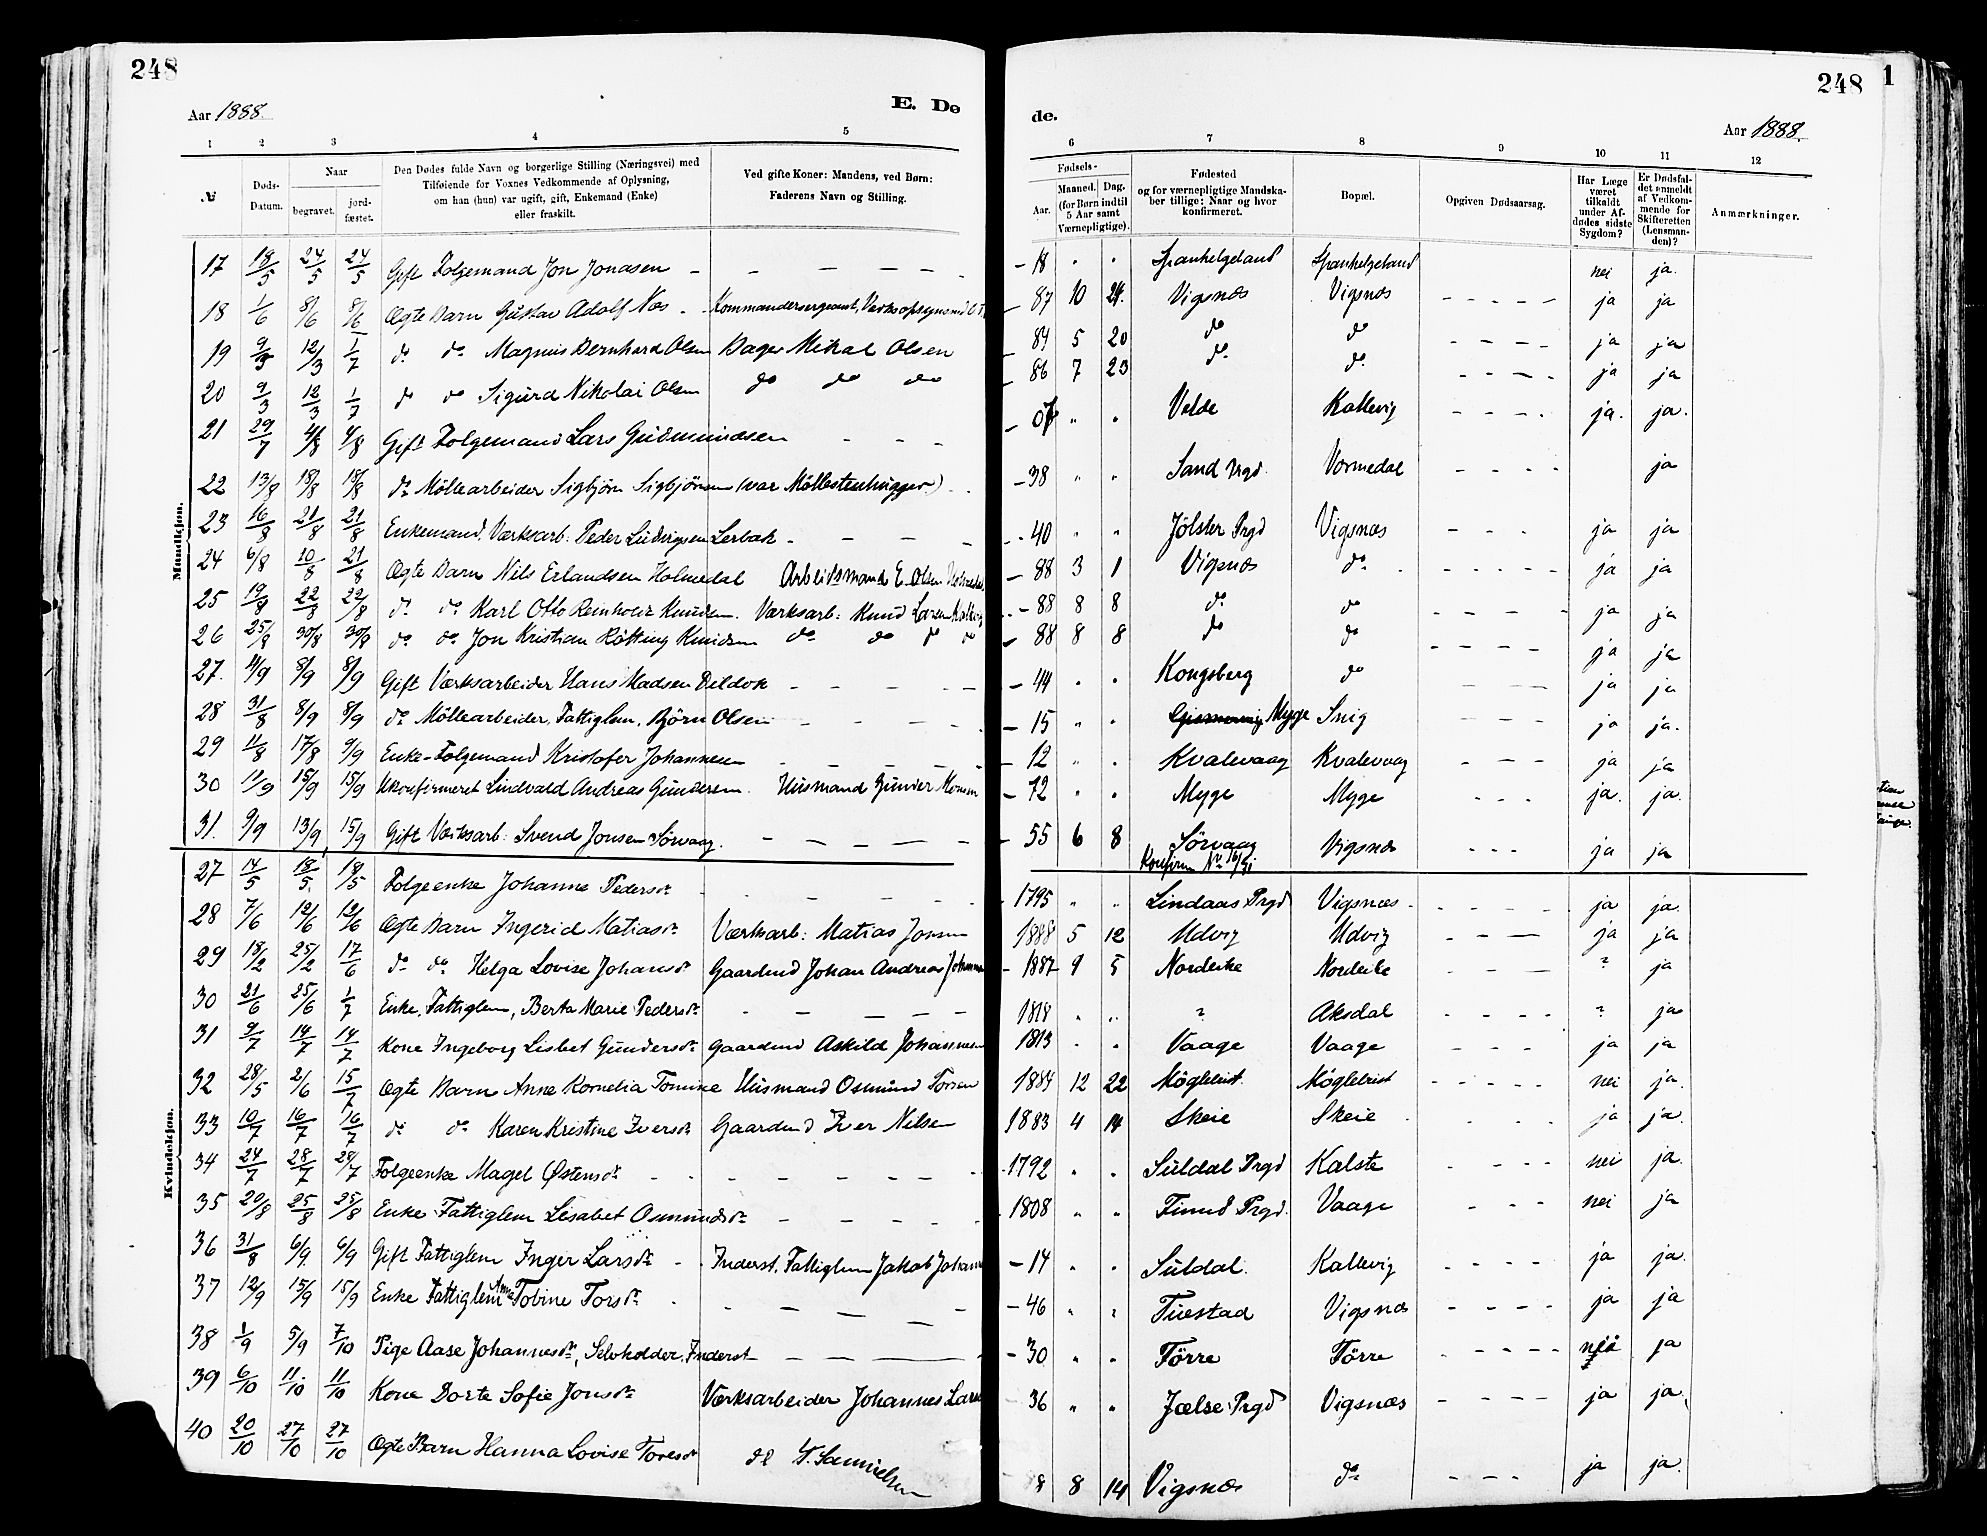 248
248
1
Aar 1888.
E. De
de.
Aar 1888.
1 2 3 4 5
6 7 8 9 10 11 12
№
Døds-Datum.
Naar
begravet.
jordfæstet.
Den Dødes fulde Navn og borgerlige Stilling (Næringsvei) med
Tilføiende for Voxnes Vedkommende af Oplysning,
om han (hun) var ugift, gift, Enkemand (Enke)
eller fraskilt.
Ved gifte Koner: Mandens, ved Børn:
Faderens Navn og Stilling.
Fødsels-
Aar.
Maaned. Dag.
(for Børn indtil
5 Aar samt
Værnepligtige).
Fødested
og for værnepligtige Mandskaber tillige: Naar og hvor
konfirmeret.
Bopæl.
Opgiven Dødsaarsag.
Har Læge
været
tilkaldt
under Afdødes sidste
Sygdom?
Er Dødsfaldet anmeldt
af Vedkommende for
Skifteretten
(Lensmanden)?
Anmærkninger.
Mandkjøn.
17 18/5 24/5 24/5 Gift Folgemand Jon Jonasen - - - - - - 18 " " Spanhelgeland Spanhelgeland nei ja.
18 1/6 8/6 8/6 Ægte Barn Gustav Adolf Næs - Kommandersergeant, - 87 10 24. Vigsnæs Vigsnæs - - - - - ja ja
19 9/3 12/3 1/7 do do Magnus Bernhard Olsen Bager Mikal Olsen - 84 5 20 do do - - - - ja ja
20 9/3 12/3 1/7 do do Sigurd Nikolai Olsen do do do - 86 7 23 do do - - - - ja ja
21 29/7 4/8 4/8 Gift Folgemand Lars Gudmundsen - - - - 07 " " Velde Kallevig - - - - ja. ja.
22 13/8 18/8 18/8 do Møllearbeider Sigbjørn Sigbjørnsen (var Møllestenhugger) - 38 " " Sand Prgd. Vormedal - - - - ja
23 16/8 21/8 21/8 Enkemand, Værksarb: Peder Ludvigsen Lerbak - - - - - 40 " " Jølster Prgd Vigsnæs - - - ja ja
24 6/8 10/8 21/8 Ægte Barn Nils Erlandsen Holmedal Arbeidsmand E. Olsen Holmedal - 88 3 1 Vigsnæs do - - - - - ja ja
25 19/8 22/8 22/8 do do Karl Otto Reinholdt Knudsen. Værksarb: Knud Larsen - 88 8 8 do do - - - - ja ja
26 25/8 30/8 30/8 do do Jon Kristian Røtting Knudsen do do do do - 88 8 8 do do - - - - ja ja
27. 4/9 8/9 8/9 Gift Værksarbeider Hans Madsen Dildok - - - - - 44 " " Kongsberg do - - - ja ja
28 31/8 8/9 8/9 do Møllearbeider, Fattiglem, Bjørn Olsen - - - - - 15 " " Mygge Snig - - - ja ja.
29 11/8 17/8 9/9 Enke-Folgemand Kristofer Johannesen - - - - - 12 " " Kvalevaag Kvalevaag - - - ja ja
30 11/9 15/9 15/9 Ukonfirmeret Lindvald Andreas Gundersen. Husmand Gunder Monsen - 72 " " Myge Myge - - - ja. ja.
31. 9/9 13/9 15/9 Gift Værksarb: Svend Jonsen Sørvaag. - - - - - - 55 6 8 Sørvaag Vigsnæs - - - ja ja
Kvindekjøn.
27 14/5 18/5. 18/5 Folgeenke Johanne Pedersdr - - - - - 1795 " " Lindaas Prgd Vigsnæs - - - - - ja ja.
28 7/6 12/6 12/6 Ægte Barn Ingerid Matiasdr Værksarb: Matias Jonsen 1888 5 12 Udvig Udvig - - - ja ja
29 18/2 25/2 17/6 do do Helga Lovise Johansdr Gaardmd Johan Andreas - 1887 9 5 Nordeike Nordeike - - - ? ja
30 21/6 25/6 1/7 Enke, Fattiglem, Berta Marie Pedersdr - - - - - 1818 " " ? Aksdal - - - - ? ja
31 9/7 14/7 14/7 Kone Ingeborg Lisbet Gundersdr Gaardmd Askild Johannesen 1813 " " Vaage Vaage - - - - ja ja
32 28/5 2/6 15/7 Ægte Barn Anne Kornelia Tomine Husmand Osmund Torsen 1884 12 22 Møglebust. Møglebust - - - - - nei ja.
33 10/7 16/7 16/7 do do Karen Kristine Iversdr Gaardmd Iver Nilsen 1883 4 14 Skeie Skeie - - - - ja ja
34 24/7 28/7 28/7 Folgeenke Magel Østensdr - - - - - - 1792 " " Suldal Prgd Kalstø - - - - nei ja.
35 20/8 25/8 25/8 Enke Fattiglem Lisabet Osmundsdr - - - - 1808 " " Prgd. Vaage - - - nei ja
36 31/8 6/9. 6/9 Gift Fattiglem Inger Larsdr - Inderst, Fattiglem Jakob - 14 " " Suldal. Kallevig - - - - ja ja.
37 12/9 15/9 15/9 Enke Fattiglem Anne Tobine Torsdr. - - - - - - 46 " " Tuestad Vigsnæs - - - - ja ja
38 1/9 5/9 7/10 Pige Aase Johannesdr, Selvholder, Inderst - - - - - 30 " " Førre Førre - - - - - nei ja
39 6/10 11/10 11/10 Kone Dorte Sofie Jonsdr Værksarbeider Johannes - 36 " " Jælse Prgd Vigsnæs - - - - ja ja.
40 20/10 27/10 27/10 Ægte Barn Hanna Lovise Toresdr do T. Samuelsen 8 8 14 Vigsnæs do - - - ja ja.